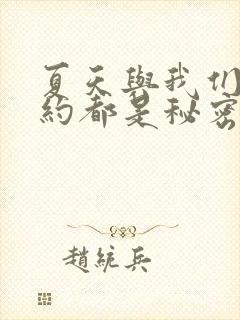 夏天與我们
約都是秘密
趙統兵